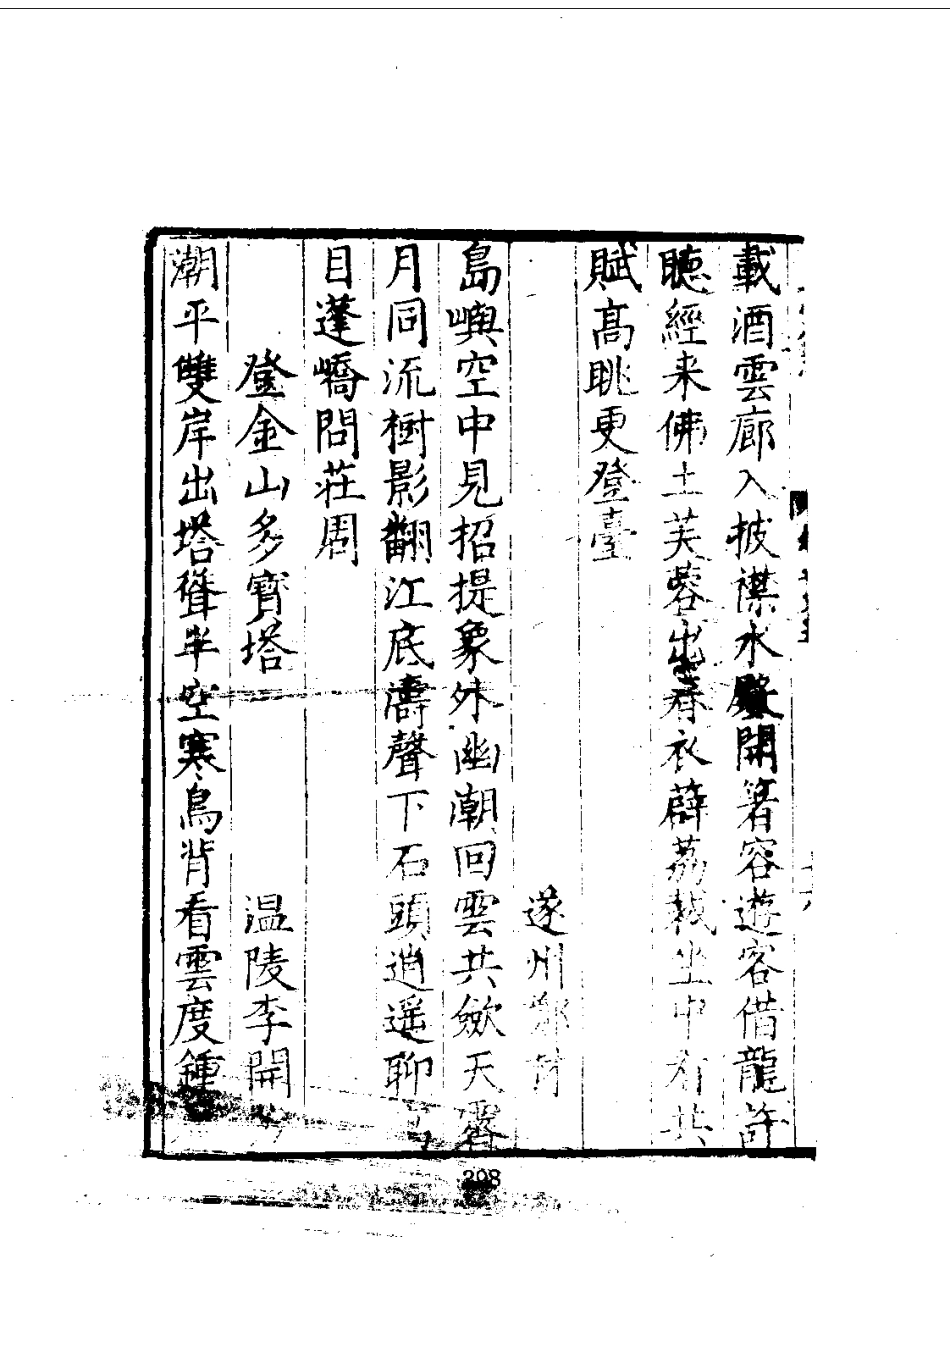 載酒雲廊入披襟水殿開箸容遊客借龍許
聽經来佛土芙蓉出春衣薜荔裁坐中有共
賦高眺更登臺
遂州
島嶼空中見招提象外幽潮回雲共斂天霽
月同流樹影翻江底濤聲下石頭逍遥聊
目蓬嶠問莊周
登金山多寳塔 温陵李開
潮平雙岸出塔聳半空寒鳥背看雲度鍾
298